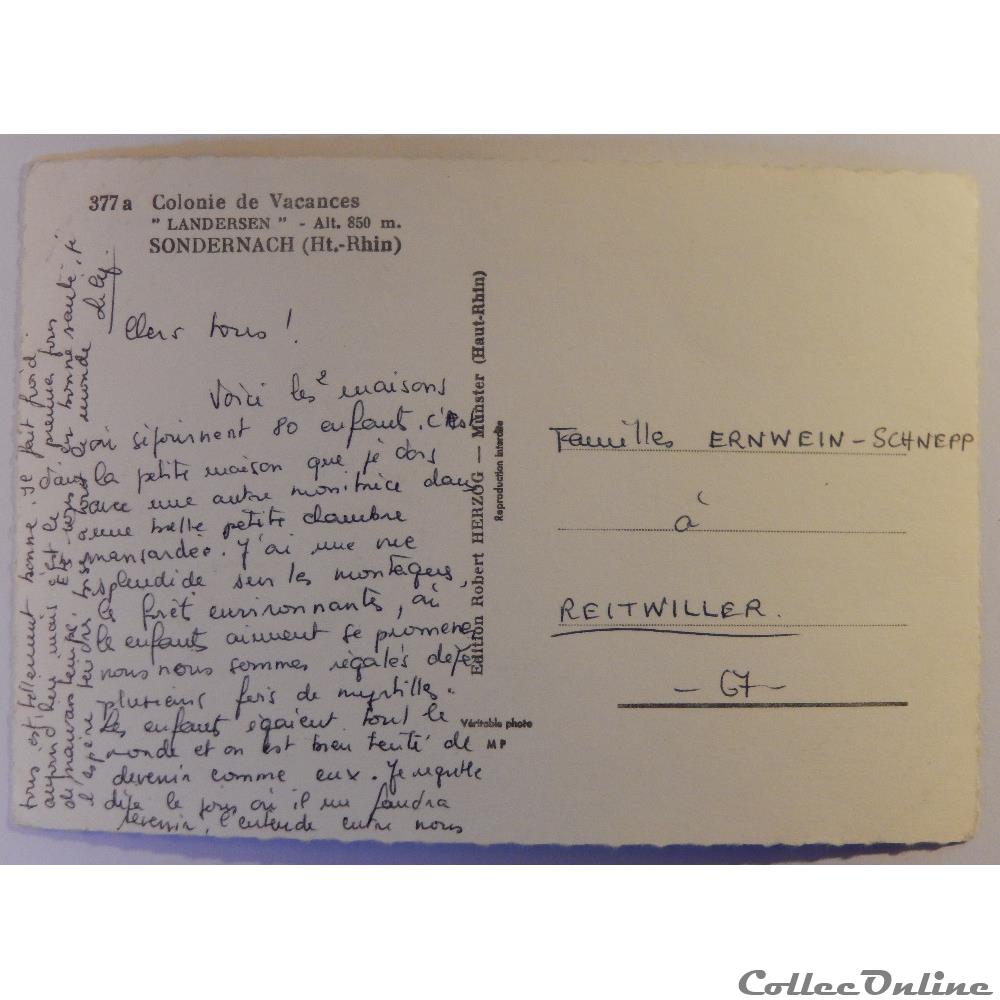 377a Colonie de Vacances
" LANDERSEN " - Alt. 850 m.
SONDERNACH (Ht.-Rhin)
Chers tous !
Voici les 2 maisons
où séjournent 80 enfants. C'est
la petite maison que je dors
avec une autre monitrice dans
une belle petite chambre
mansardée. J'ai une vue
splendide sur les montagnes,
la forêt environnante, où
les enfants aiment se promener
nous nous sommes régalés déjà
plusieurs fois de myrtilles.
Les enfants égaient tout le
monde et on est bien tenté de
devenir comme eux. Je regrette
déjà le jour où il me faudra
revenir, l'entende entre nous
tous est tellement bonne. Il fait froid
aujourd'hui mais c'est le premier jour
de mauvais temps. Êtes-vous en bonne santé, je
l'espère. tout le monde
Lily.
Edition Robert HERZOG — Munster (Haut-Rhin)
Reproduction interdite
Véritable photo
MP
Familles ERNWEIN-SCHNEPP
à
REITWILLER.
- 67 -
CollecOnline